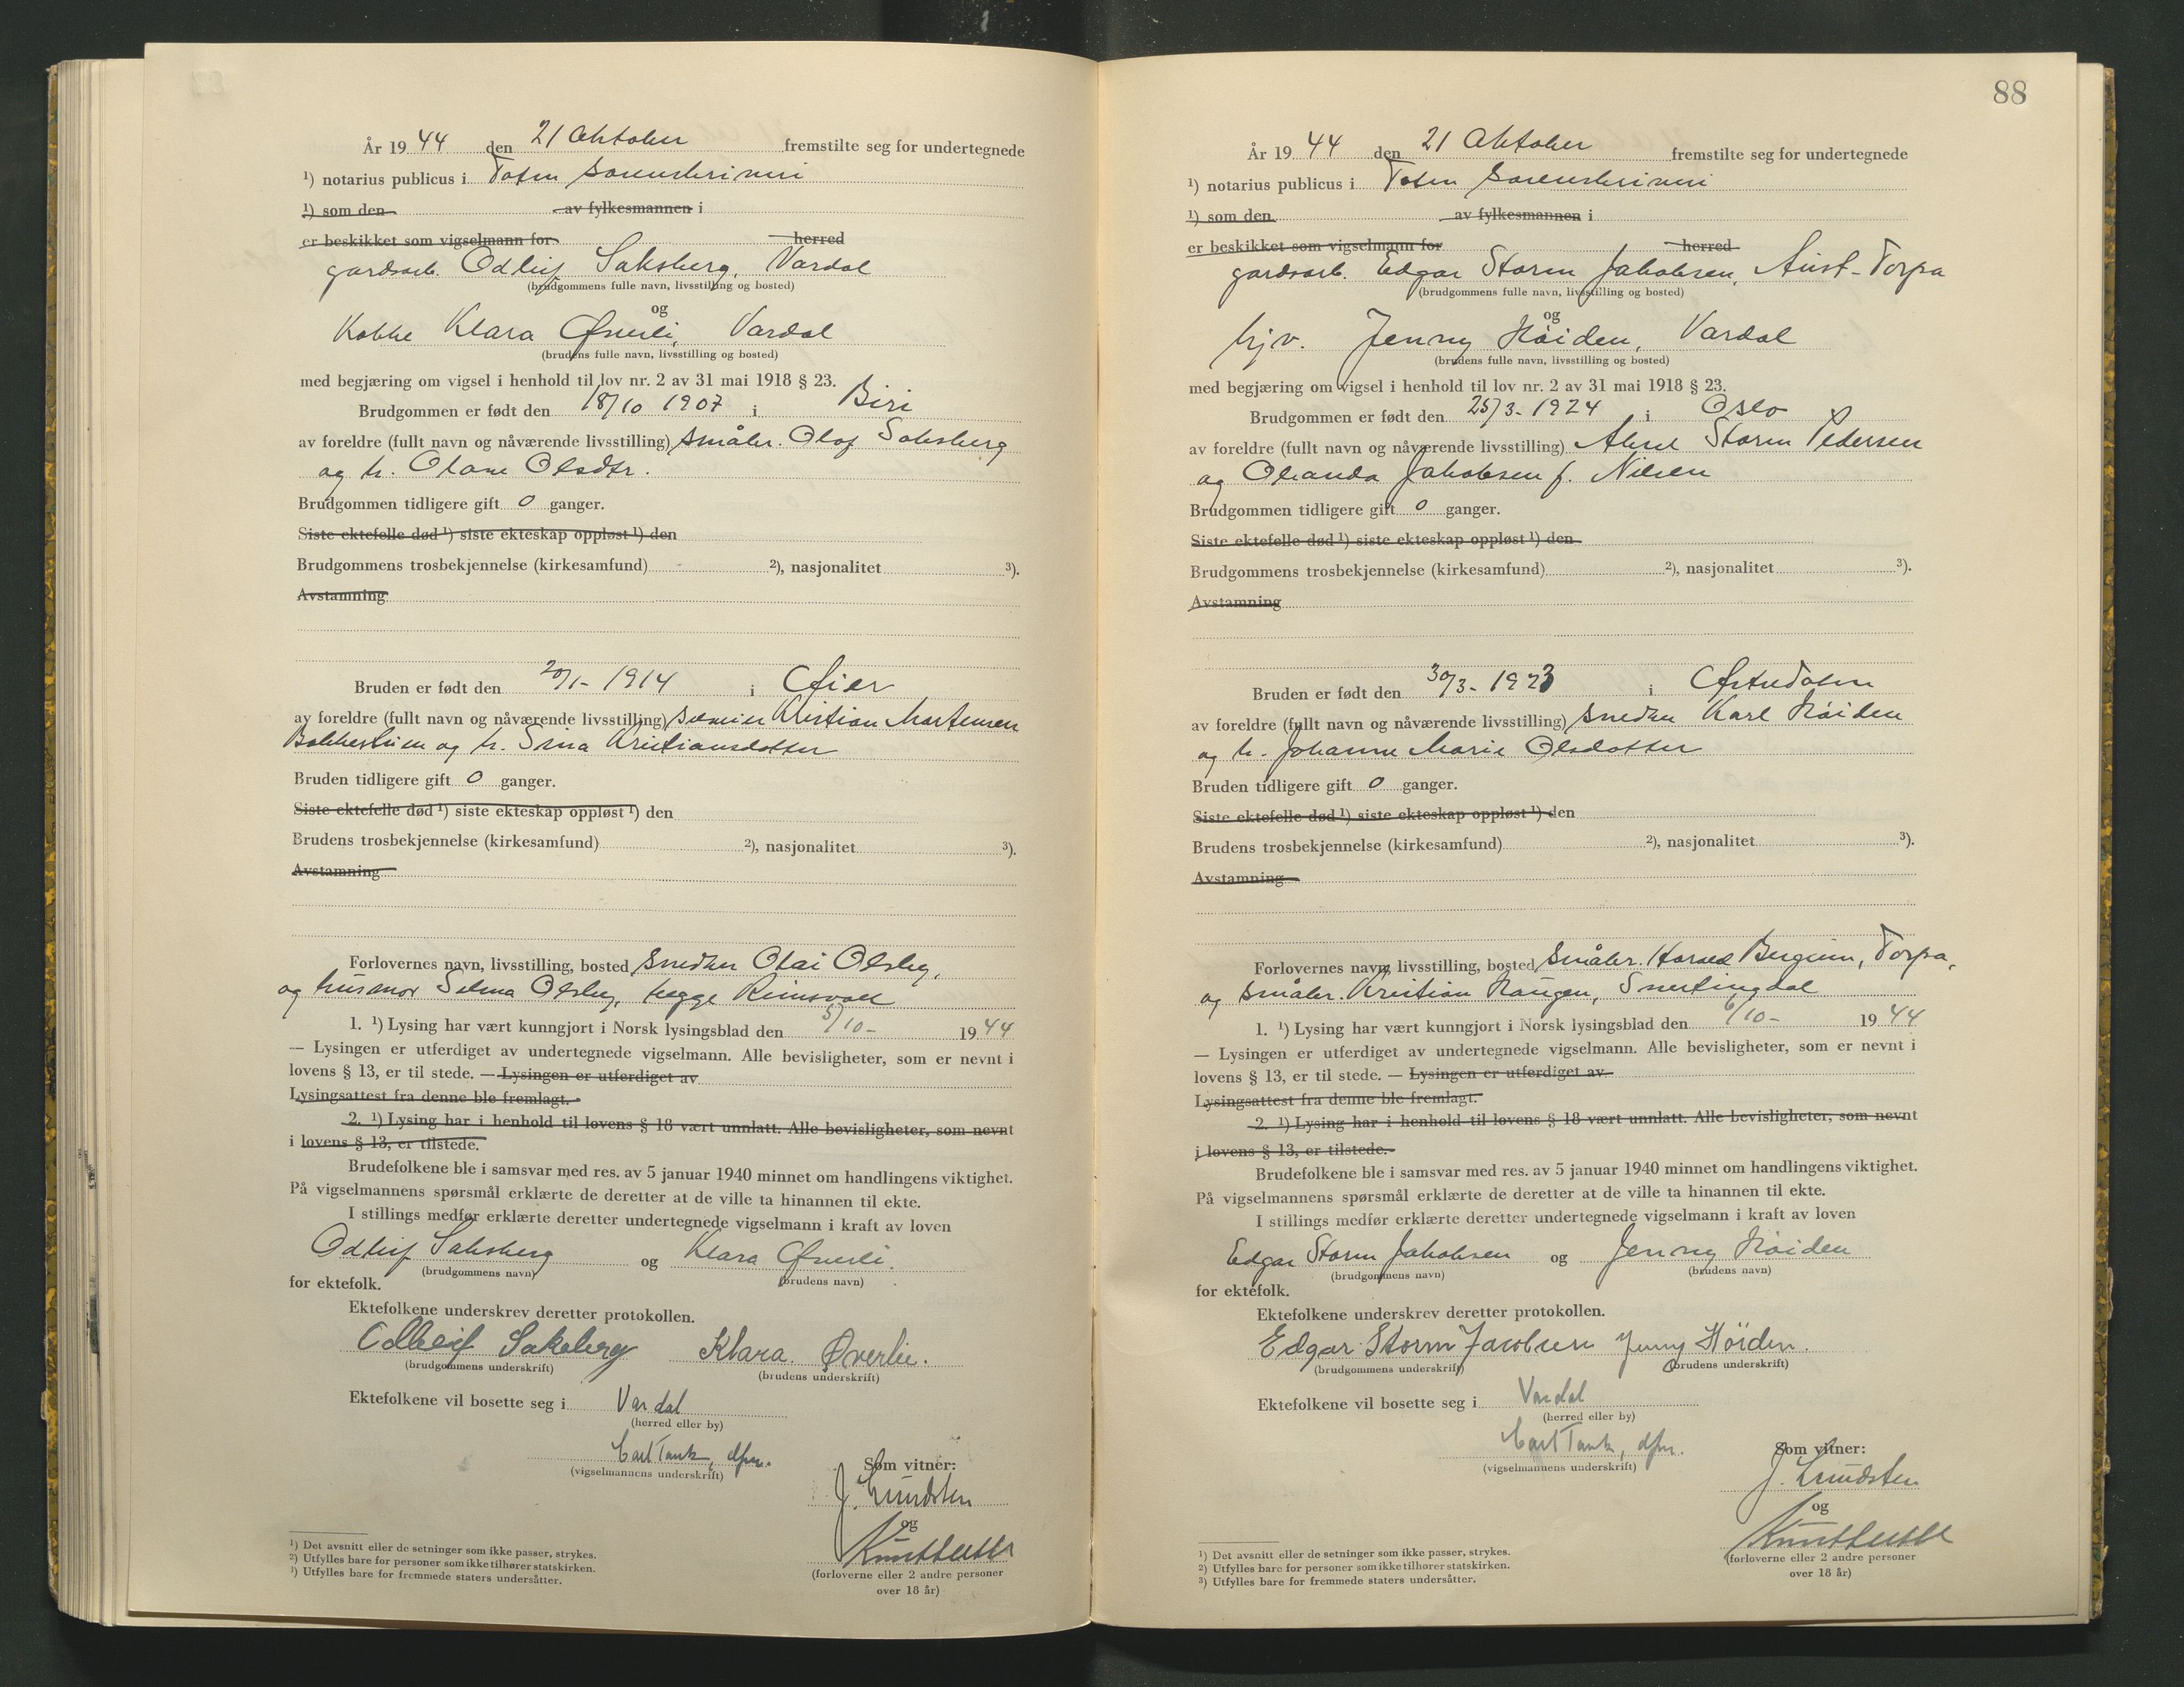 År 19 44 den 21 Oktober fremstilte seg for undertegnede
¹) notarius publicus i Toten Sorenskriveri
¹) som den av fylkesmannen i
er beskikket som vigselmann for herred
gardsarb. Odleif Saksberg, Vardal
(brudgommens fulle navn, livsstilling og bosted)
og
Kokke Klara Øverli, Vardal
(brudens fulle navn, livsstilling og bosted)
med begjæring om vigsel i henhold til lov nr. 2 av 31 mai 1918 § 23.
Brudgommen er født den 18/10 1907 i Biri
av foreldre (fullt navn og nåværende livsstilling) småbr. Olaf Saksberg
og h. Olane Olsdtr.
Brudgommen tidligere gift 0 ganger.
Siste ektefelle død ¹) siste ekteskap oppløst ¹) den
Brudgommens trosbekjennelse (kirkesamfund) ²), nasjonalitet ³).
Avstamning
Bruden er født den 20/1- 1914 i Øier
av foreldre (fullt navn og nåværende livsstilling) Kristian Martensen
og h. Sina Kristiansdotter
Bruden tidligere gift 0 ganger.
Siste ektefelle død ¹) siste ekteskap oppløst ¹) den
Brudens trosbekjennelse (kirkesamfund) ²), nasjonalitet ³).
Avstamning
Forlovernes navn, livsstilling, bosted snedker Olai Olsby,
og husmor Selma Olsby, begge Reinsvoll
1. ¹) Lysing har vært kunngjort i Norsk lysingsblad den 5/10- 19 44
— Lysingen er utferdiget av undertegnede vigselmann. Alle bevisligheter, som er nevnt i
lovens § 13, er til stede. — Lysingen er utferdiget av
Lysingsattest fra denne ble fremlagt.
2. ¹) Lysing har i henhold til lovens § 18 vært unnlatt. Alle bevisligheter, som nevnt
i lovens § 13, er tilstede.
Brudefolkene ble i samsvar med res. av 5 januar 1940 minnet om handlingens viktighet.
På vigselmannens spørsmål erklærte de deretter at de ville ta hinannen til ekte.
I stillings medfør erklærte deretter undertegnede vigselmann i kraft av loven
Odleif Saksberg og Klara Øverli.
(brudgommens navn) (brudens navn)
for ektefolk.
Ektefolkene underskrev deretter protokollen.
Odleif Saksberg Klara Øverlie.
(brudgommens underskrift) (brudens underskrift)
Ektefolkene vil bosette seg i Vardal
(herred eller by)
Carl Tank, dfm.
(vigselmannens underskrift)
Som vitner:
J. Lundsten
og
(forloverne eller 2 andre personer
over 18 år)
¹) Det avsnitt eller de setninger som ikke passer, strykes.
²) Utfylles bare for personer som ikke tilhører statskirken.
³) Utfylles bare for fremmede staters undersåtter.
88
År 19 44 den 21 Oktober fremstilte seg for undertegnede
¹) notarius publicus i Toten Sorenskriveri
¹) som den av fylkesmannen i
er beskikket som vigselmann for herred
gardsarb. Edgar Storm Jakobsen, Aust-Torpa
(brudgommens fulle navn, livsstilling og bosted)
og
hjv. Jenny Høiden, Vardal
(brudens fulle navn, livsstilling og bosted)
med begjæring om vigsel i henhold til lov nr. 2 av 31 mai 1918 § 23.
Brudgommen er født den 25/3- 1924 i Oslo
av foreldre (fullt navn og nåværende livsstilling) Aksel Storm Pedersen
og Olianda Jakobsen f. Nilsen
Brudgommen tidligere gift 0 ganger.
Siste ektefelle død ¹) siste ekteskap oppløst ¹) den
Brudgommens trosbekjennelse (kirkesamfund) ²), nasjonalitet ³).
Avstamning
Bruden er født den 30/3- 1923 i Østre Toten
av foreldre (fullt navn og nåværende livsstilling) snedker Karl Høiden
og h. Johanne Marie Olsdotter
Bruden tidligere gift 0 ganger.
Siste ektefelle død ¹) siste ekteskap oppløst ¹) den
Brudens trosbekjennelse (kirkesamfund) ²), nasjonalitet ³).
Avstamning
Forlovernes navn, livsstilling, bosted småbr. Harald Bergum, Torpa,
og småbr. Kristian Haugen, Snertingdal
1. ¹) Lysing har vært kunngjort i Norsk lysingsblad den 6/10- 19 44
— Lysingen er utferdiget av undertegnede vigselmann. Alle bevisligheter, som er nevnt i
lovens § 13, er til stede. — Lysingen er utferdiget av
Lysingsattest fra denne ble fremlagt.
2. ¹) Lysing har i henhold til lovens § 18 vært unnlatt. Alle bevisligheter, som nevnt
i lovens § 13, er tilstede.
Brudefolkene ble i samsvar med res. av 5 januar 1940 minnet om handlingens viktighet.
På vigselmannens spørsmål erklærte de deretter at de ville ta hinannen til ekte.
I stillings medfør erklærte deretter undertegnede vigselmann i kraft av loven
Edgar Storm Jakobsen og Jenny Høiden
(brudgommens navn) (brudens navn)
for ektefolk.
Ektefolkene underskrev deretter protokollen.
Edgar Storm Jacobsen Jenny Höiden.
(brudgommens underskrift) (brudens underskrift)
Ektefolkene vil bosette seg i Vardal
(herred eller by)
Carl Tank, dfm.
(vigselmannens underskrift)
Som vitner:
J. Lundsten
og
(forloverne eller 2 andre personer
over 18 år)
¹) Det avsnitt eller de setninger som ikke passer, strykes.
²) Utfylles bare for personer som ikke tilhører statskirken.
³) Utfylles bare for fremmede staters undersåtter.